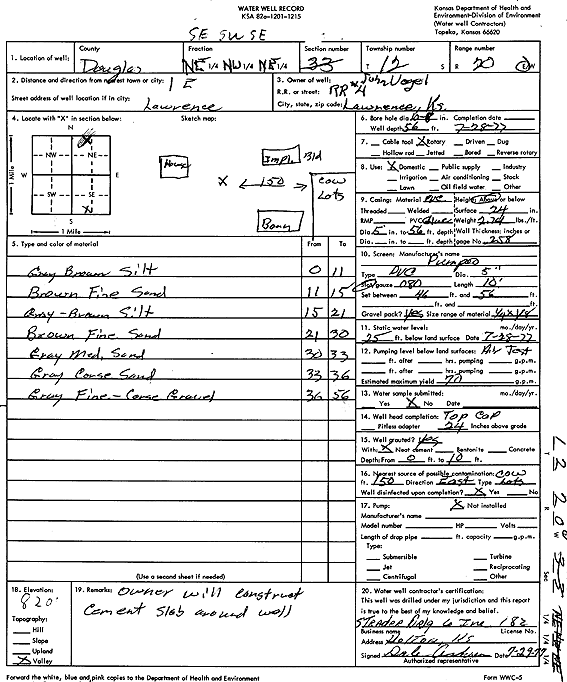 WATER WELL RECORD
KSA 82a-1201-1215
Kansas Department of Health and
Environment-Division of Environment
(Water well Contractors)
Topeka, Kansas 66620
SE SW SE
1. Location of well:
County
Douglas
Fraction
NE 1/4 NW 1/4 NE 1/4
Section number
33
Township number
T 12 S
Range number
R 20 E/W
2. Distance and direction from nearest town or city: 1 E
Street address of well location if in city:
Lawrence
3. Owner of well: John Vogel
R.R. or street: RR #4
City, state, zip code: Lawrence, Ks.
4. Locate with "X" in section below:
Sketch map:
N
NW
NE
W
E
SW
SE
S
1 Mile
1 Mile
X
House
Impl. Bld
X 150
Cow
Lots
Barn
6. Bore hole dia. in. Completion date
Well depth 56 ft. 7-28-77
7. Cable tool X Rotary Driven Dug
Hollow rod Jetted Bored Reverse rotary
8. Use: X Domestic Public supply Industry
Irrigation Air conditioning Stock
Lawn Oil field water Other
9. Casing: Material PVC Height: Above or below
Threaded Welded Surface 24 in.
RMP PVC Weight 2.74 lbs./ft.
Dia. 5 in. to 56 ft. depth Wall Thickness: inches or
Dia. in. to ft. depth gage No. 258
5. Type and color of material
From To
Gray Brown Silt 0 11
Brown Fine Sand 11 15
Gray-Brown Silt 15 21
Brown Fine Sand 21 30
Gray Med. Sand 30 33
Gray Corse Sand 33 36
Gray Fine-Corse Gravel 36 56
10. Screen: Manufacturer's name
Pumpco
Type PVC Dia. 5"
Slot/gauze .080 Length 10'
Set between 46 ft. and 56 ft.
ft. and ft.
Gravel pack? yes Size range of material 1/4 x 1/8
11. Static water level: mo./day/yr.
25 ft. below land surface Date 7-28-77
12. Pumping level below land surfaces: Air Test
ft. after hrs. pumping g.p.m.
ft. after hrs. pumping g.p.m.
Estimated maximum yield 70 g.p.m.
13. Water sample submitted: mo./day/yr.
Yes X No Date
14. Well head completion: Top Cap
Pitless adapter 24 Inches above grade
15. Well grouted? yes
With: X Neat cement Bentonite Concrete
Depth: From 0 ft. to 10 ft.
16. Nearest source of possible contamination: Cow
ft. 150 Direction East Type Lots
Well disinfected upon completion? X Yes No
17. Pump: X Not installed
Manufacturer's name
Model number HP Volts
Length of drop pipe ft. capacity g.p.m.
Type:
Submersible Turbine
Jet Reciprocating
Centrifugal Other
(Use a second sheet if needed)
18. Elevation:
820'
Topography:
Hill
Slope
Upland
X Valley
19. Remarks: Owner will construct
Cement Slab around well
20. Water well contractor's certification:
This well was drilled under my jurisdiction and this report
is true to the best of my knowledge and belief.
Strader Drlg Co Inc. 182
Business name License No.
Address Holton, Ks
Signed Dale 7-29-77
Authorized representative
Forward the white, blue and pink copies to the Department of Health and Environment
Form WWC-5
T
R
W
Sec
1/4 1/4 1/4